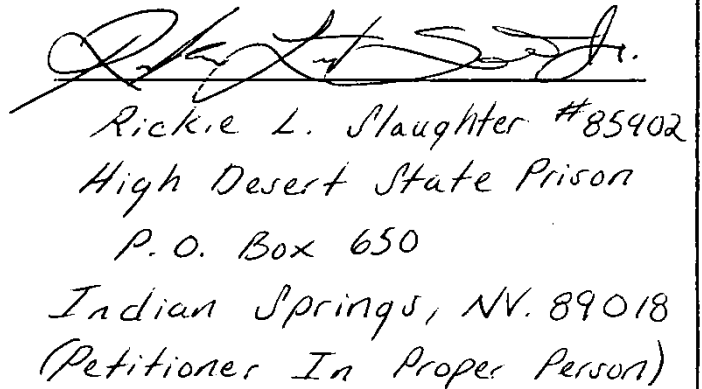 Rickie L. Slaughter #85902
High Desert State Prison
P.O. Box 650
Indian Springs, NV. 89018
(Petitioner In Proper Person)